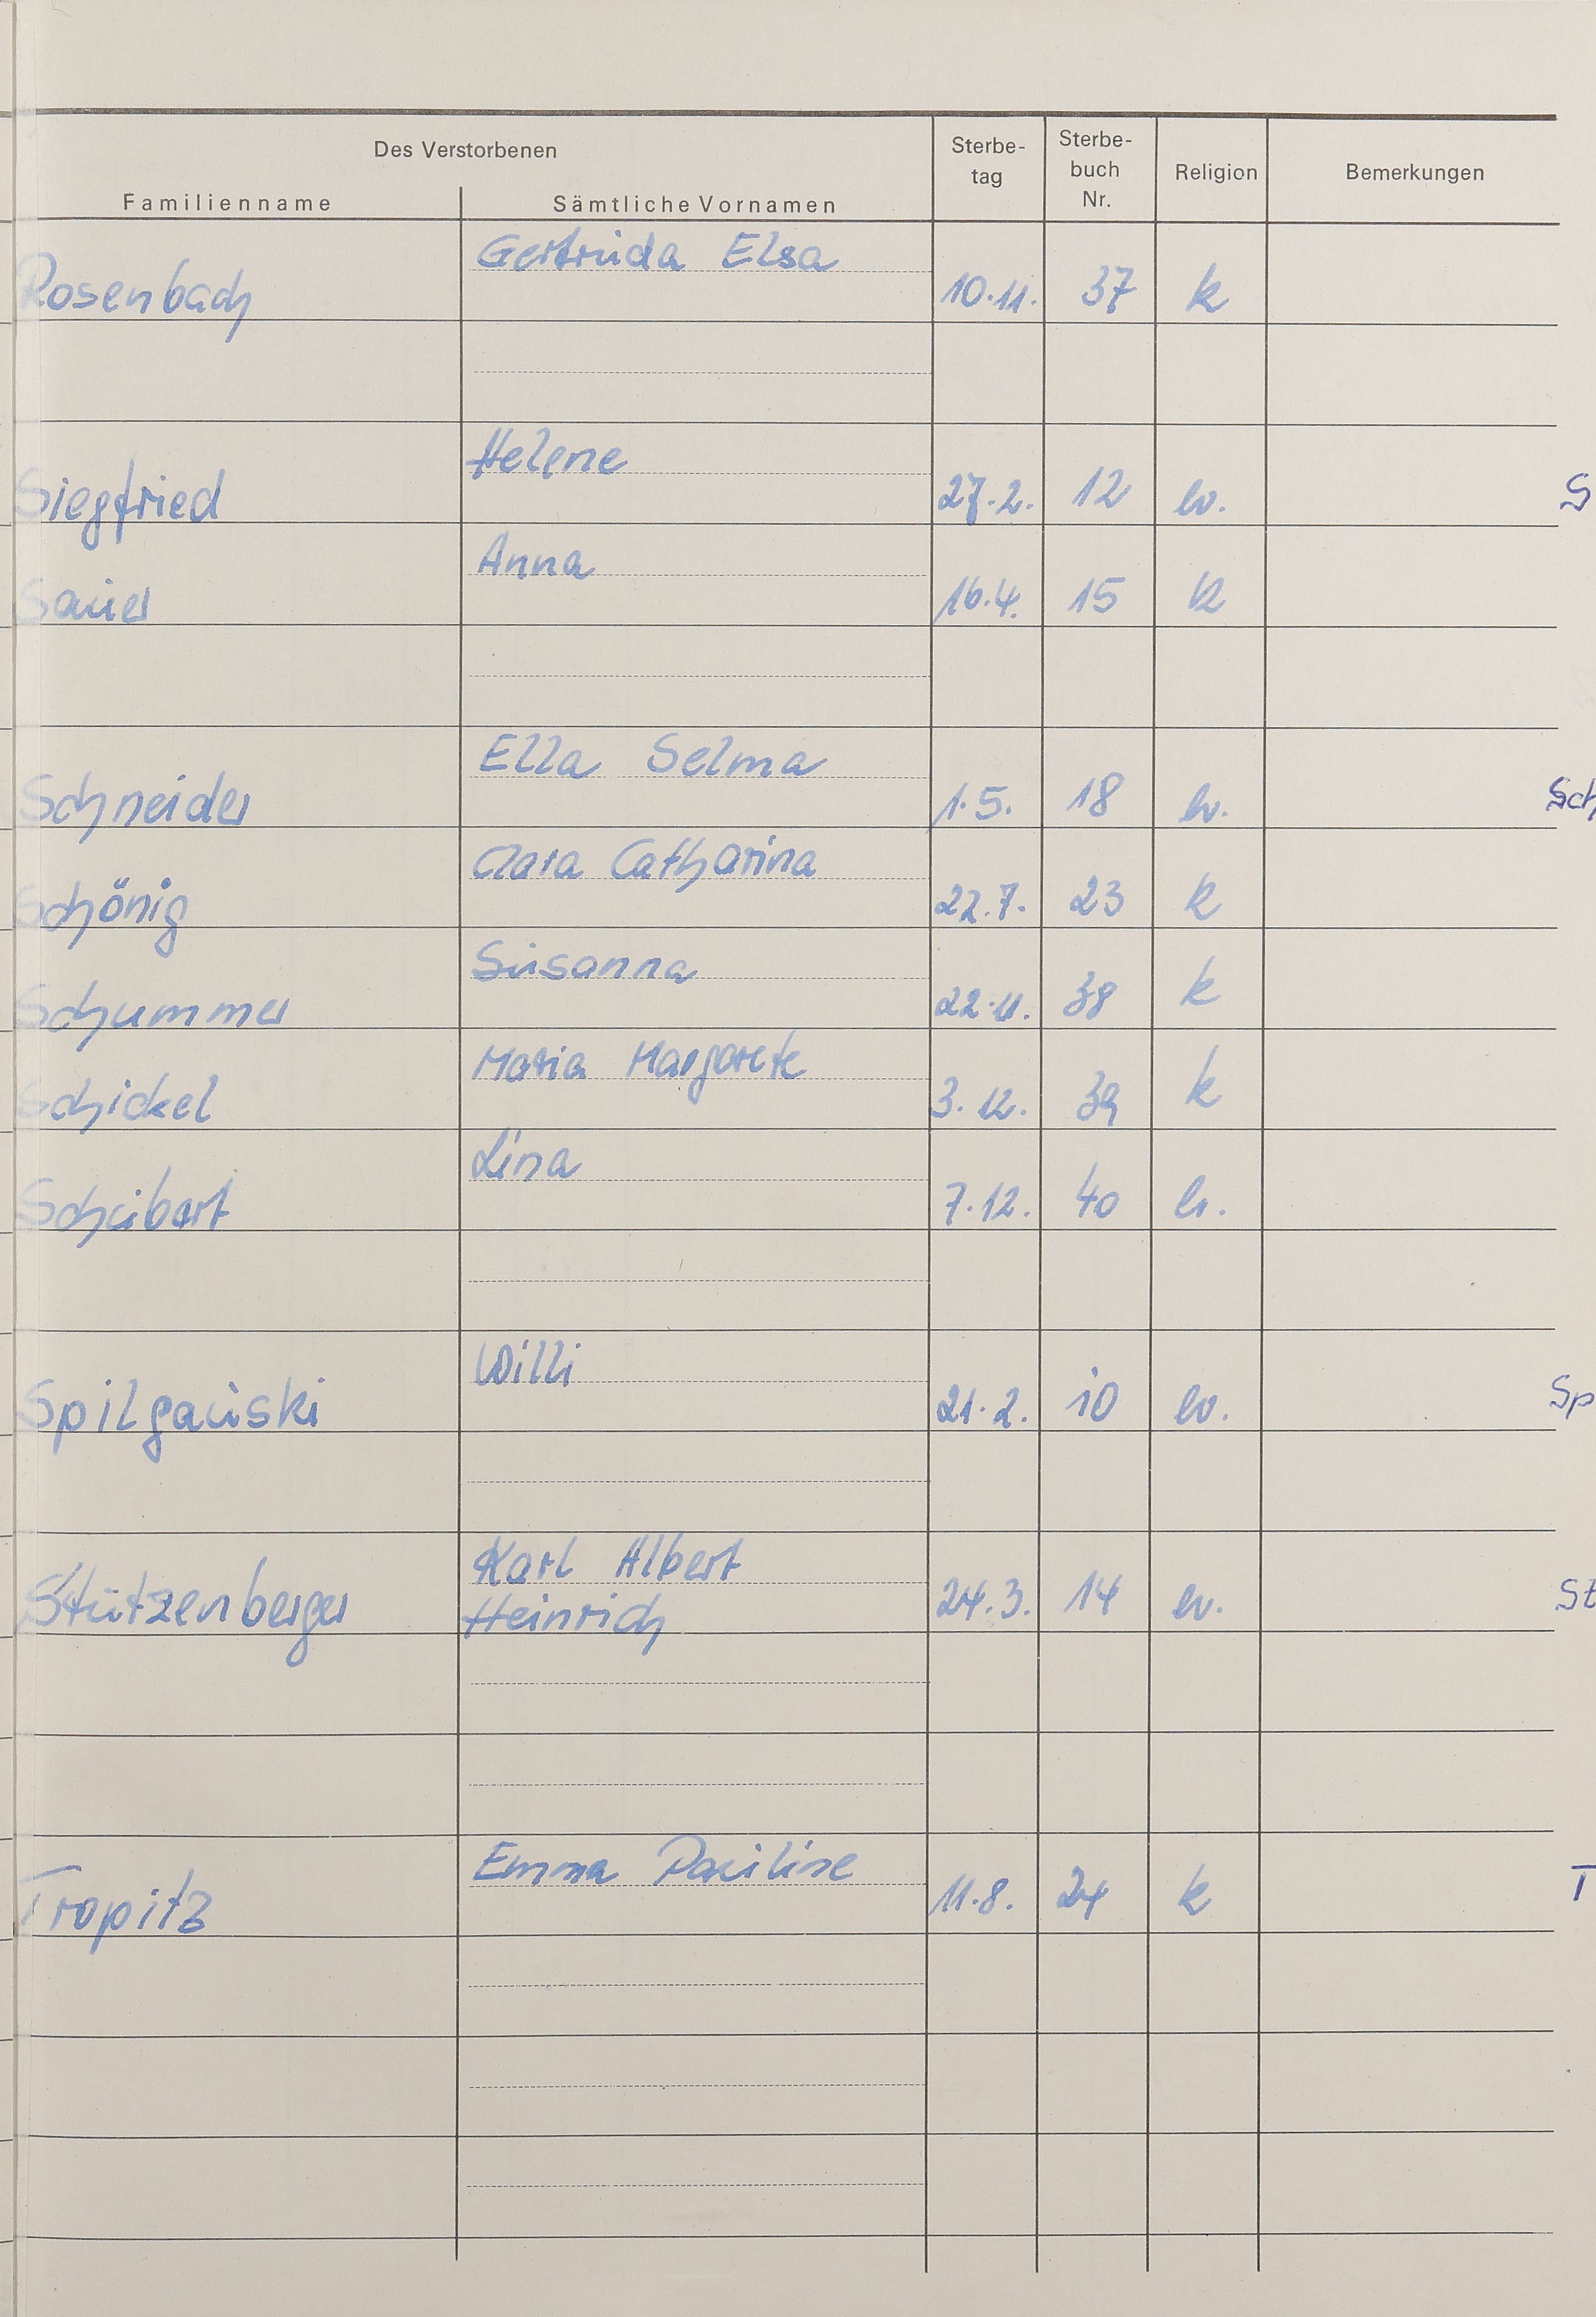 Des Verstorbenen
Familienname Sämtliche Vornamen Sterbe-tag Sterbe-buch Nr. Religion Bemerkungen
Gertruda Elsa
Rosenbach 10.11. 37 k
Helene
Siegfried 27.2. 12 ev. S
Anna
Sauer 16.4. 15 k
Ella Selma
Schneider 1.5. 18 ev. Sch
Clara Catharina
Schönig 22.7. 23 k
Susanna
Schummer 22.11. 38 k
Maria Margarete
Schickel 3.12. 39 k
Lina
Schubert 7.12. 40 ev.
Willi
Spilgauski 21.2. 10 ev. Sp
Karl Albert
Stützenberger Heinrich 24.3. 14 ev. St
Emma Pauline
Tropitz 11.8. 24 k T